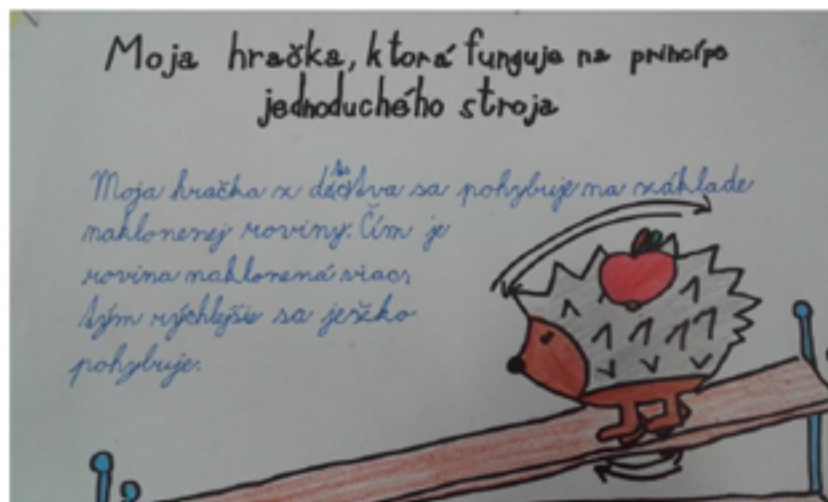 Moja hračka, ktorá funguje na princípe
jednoduchého stroja
Moja hračka z detstva sa pohybuje na základe
naklonenej roviny. Čím je
rovina naklonená viac,
tým rýchlejšie sa ježko
pohybuje.